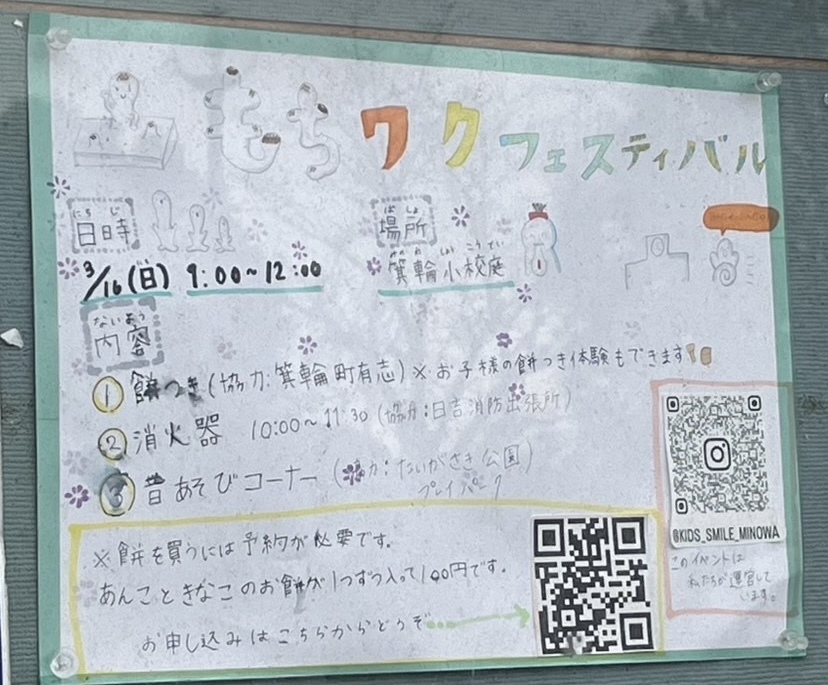 もちワクフェスティバル
にちじ
日時
3/16(日) 9:00~12:00
ばしょ
場所
みのわしょうこうてい
箕輪小校庭
ないよう
内容
① 餅つき(協力:箕輪町有志)※お子様の餅つき体験もできます!
② 消火器 10:00~11:30(協力:日吉消防出張所)
③ 昔あそびコーナー(協力:たいがさき公園)
プレイパーク
※餅を買うには予約が必要です。
あんこときなこのお餅が1つずつ入って100円です。
お申し込みはこちらからどうぞ
@KIDS_SMILE_MINOWA
このイベントは
私たちが運営して
います。